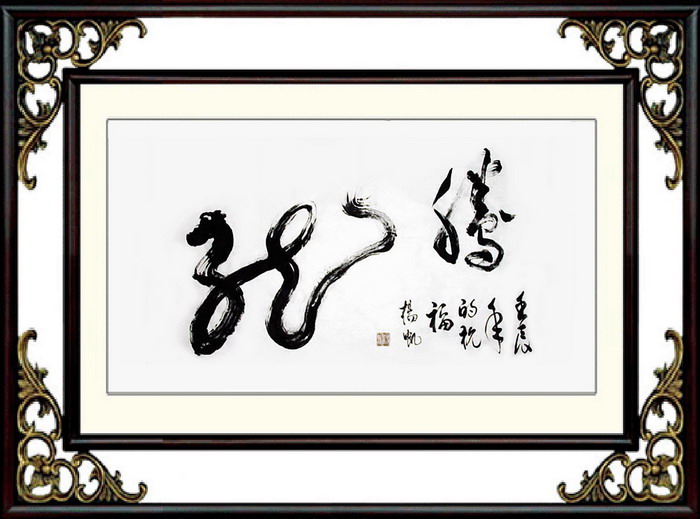 騰
龍
壬辰
年
的祝
福
楊帆